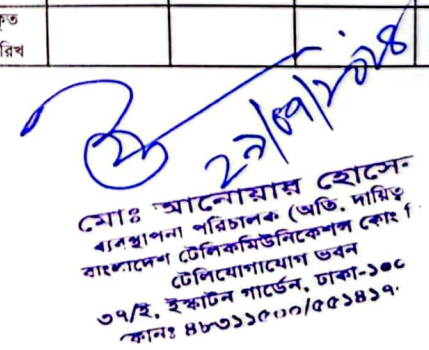 কৃত
রিখ
২৭/০৭/২০২৪
মোঃ আনোয়ার হোসে
ব্যবস্থাপনা পরিচালক (অতি. দায়িত্ব
বাংলাদেশ টেলিকমিউনিকেশন্স কোং
টেলিযোগাযোগ ভবন
৩৭/ই, ইস্কাটন গার্ডেন, ঢাকা-১০০
ফোনঃ ৪৮৩১১৫০০/৫৫১৪১৭